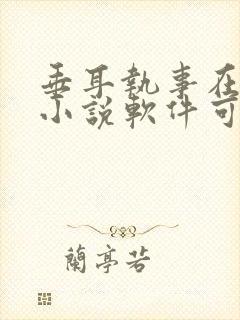 垂耳執事在
小說軟件可
蘭亭若